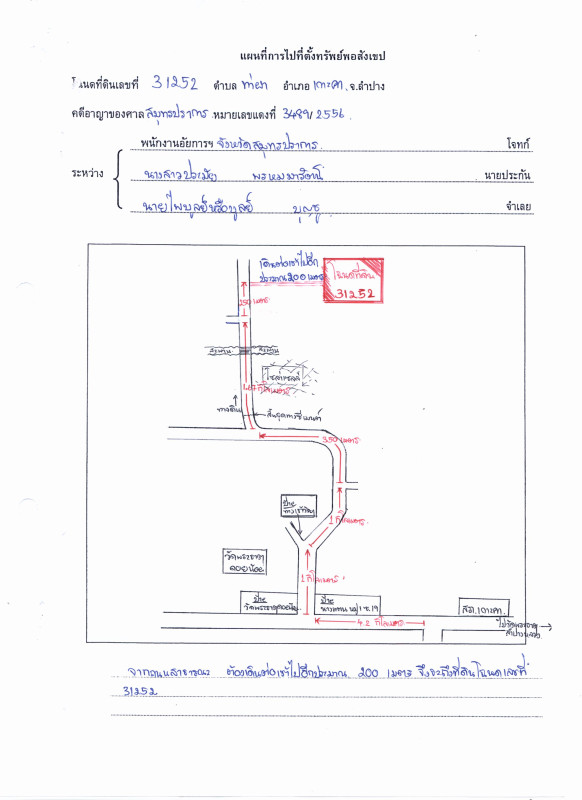 แผนที่การไปที่ตั้งทรัพย์พอสังเขป
โฉนดที่ดินเลขที่ 31252 ตำบล ท่าผา อำเภอ เกาะคา จ.ลำปาง
คดีอาญาของศาล สมุทรปราการ หมายเลขแดงที่ 3489/2556
พนักงานอัยการฯ จังหวัดสมุทรปราการ โจทก์
ระหว่าง นางสาวประเมิน นายประกัน
นายไพบูลย์หรือบูลย์ จำเลย
เดินต่อเข้าไปอีก
ประมาณ 200 เมตร
โฉนดที่ดิน
31252
250 เมตร
สะพาน สะพาน
ทางดิน
สิ้นสุดทางซีเมนต์
350 เมตร
1 กิโลเมตร
ป้าย
วัดพระธาตุ
ดอยน้อย
1 กิโลเมตร
ป้าย
วัดพระธาตุดอยน้อย
ป้าย
สภ.เกาะคา
4.2 กิโลเมตร
ไปวัดพระธาตุ
ลำปางหลวง
จากถนนสาธารณะ ต้องเดินต่อเข้าไปอีกประมาณ 200 เมตร จึงจะถึงที่ดินโฉนดเลขที่
31252